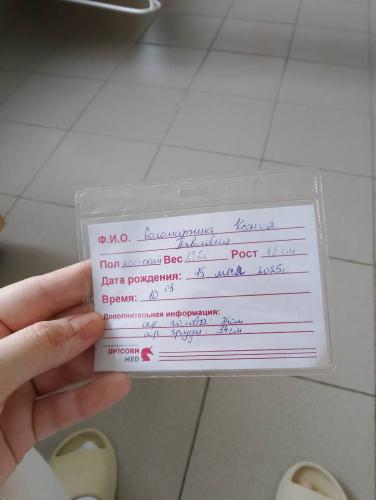 Ф.И.О. Соломатина Ксения
Павловна
Пол женский Вес Рост 51 см
Дата рождения: 15 мая 2025г
Время: 10
Дополнительная информация:
окр. головы 34см
окр. груди 34см
UNICORN
MED